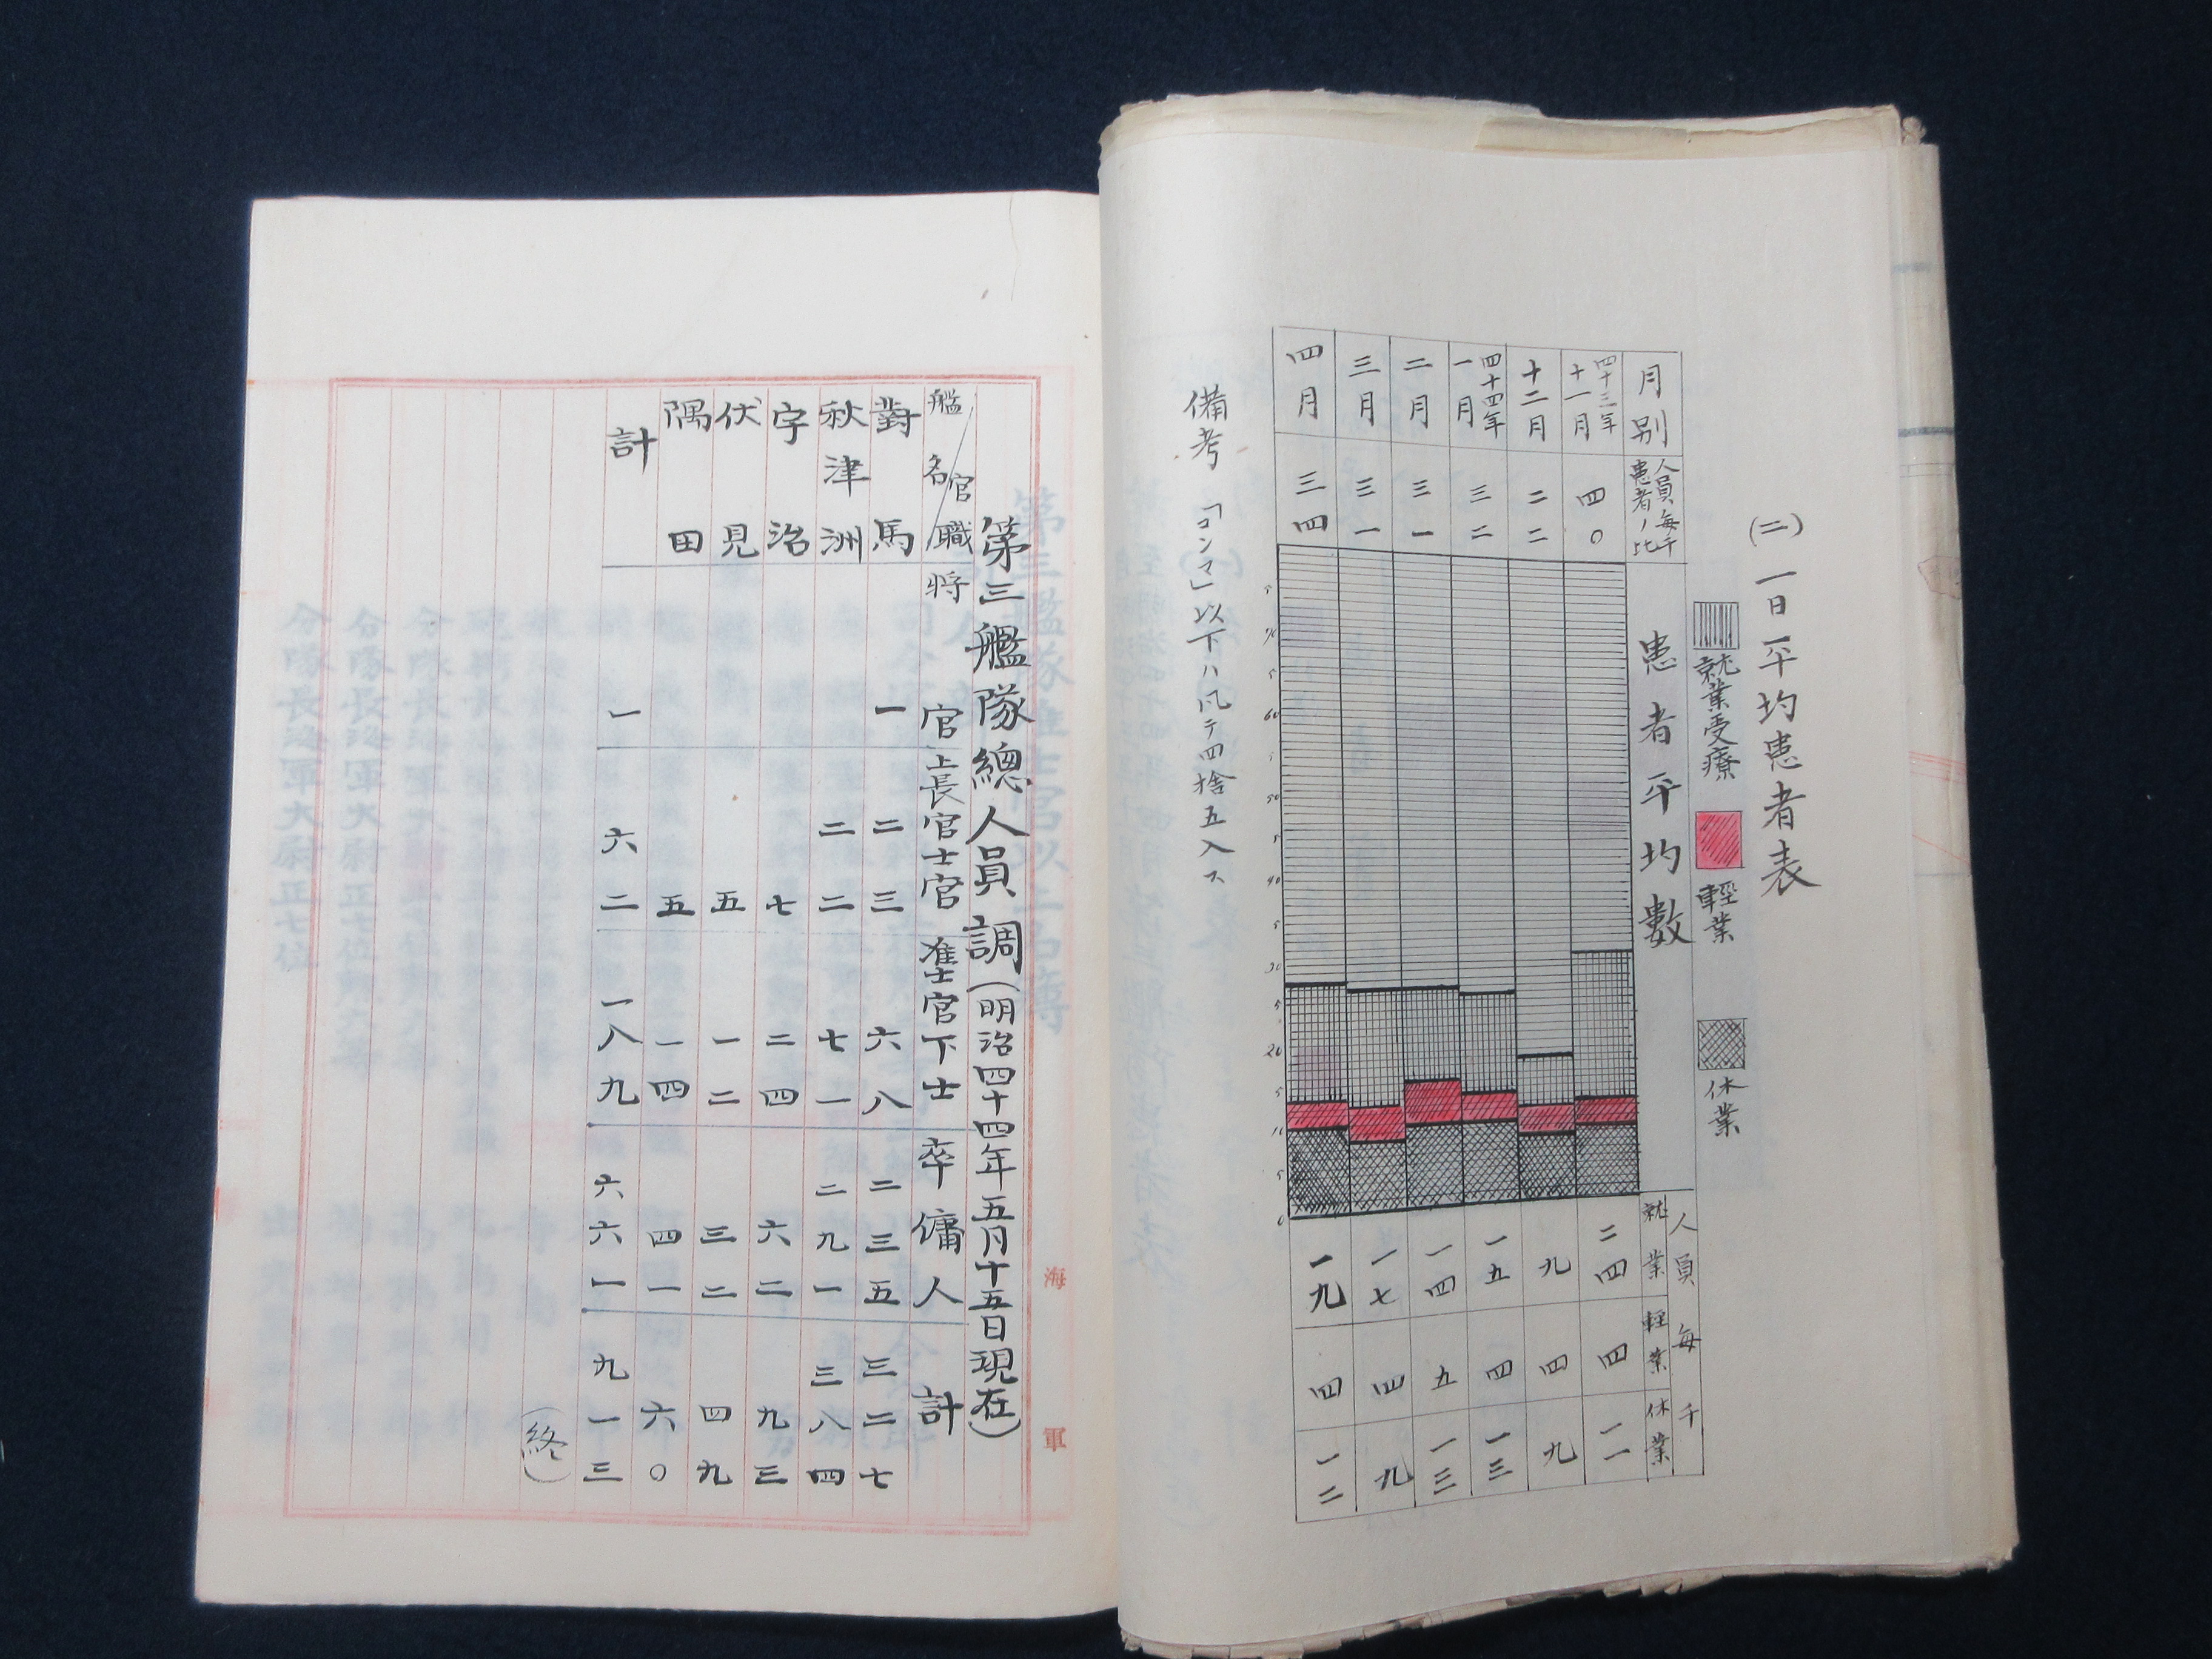 (二)一日平均患者表
就業受療
輕業
休業
月別
人員毎千患者ノ比
患者平均數
人員毎千
就業
輕業
休業
四十三年十一月
四〇
二四
四
一一
十二月
二二
九
四
九
四十四年一月
三二
一五
四
一三
二月
三一
一四
五
一三
三月
三一
一七
四
九
四月
三四
一九
四
一二
70
5
60
5
50
5
40
5
30
5
20
5
10
5
0
備考 「コンマ」以下ハ凡テ四捨五入ス
第三艦隊總人員調(明治四十四年五月十五日現在)
艦名 官職 將官 上長官士官 准士官下士 卒傭人 計
對馬 一 二三 六八 二三五 三二七
秋津洲 二二 七一 二九一 三八四
宇治 七 二四 六二 九三
伏見 五 一二 三二 四九
隅田 五 一四 四一 六〇
計 一 六二 一八九 六六一 九一三
(終)
海軍